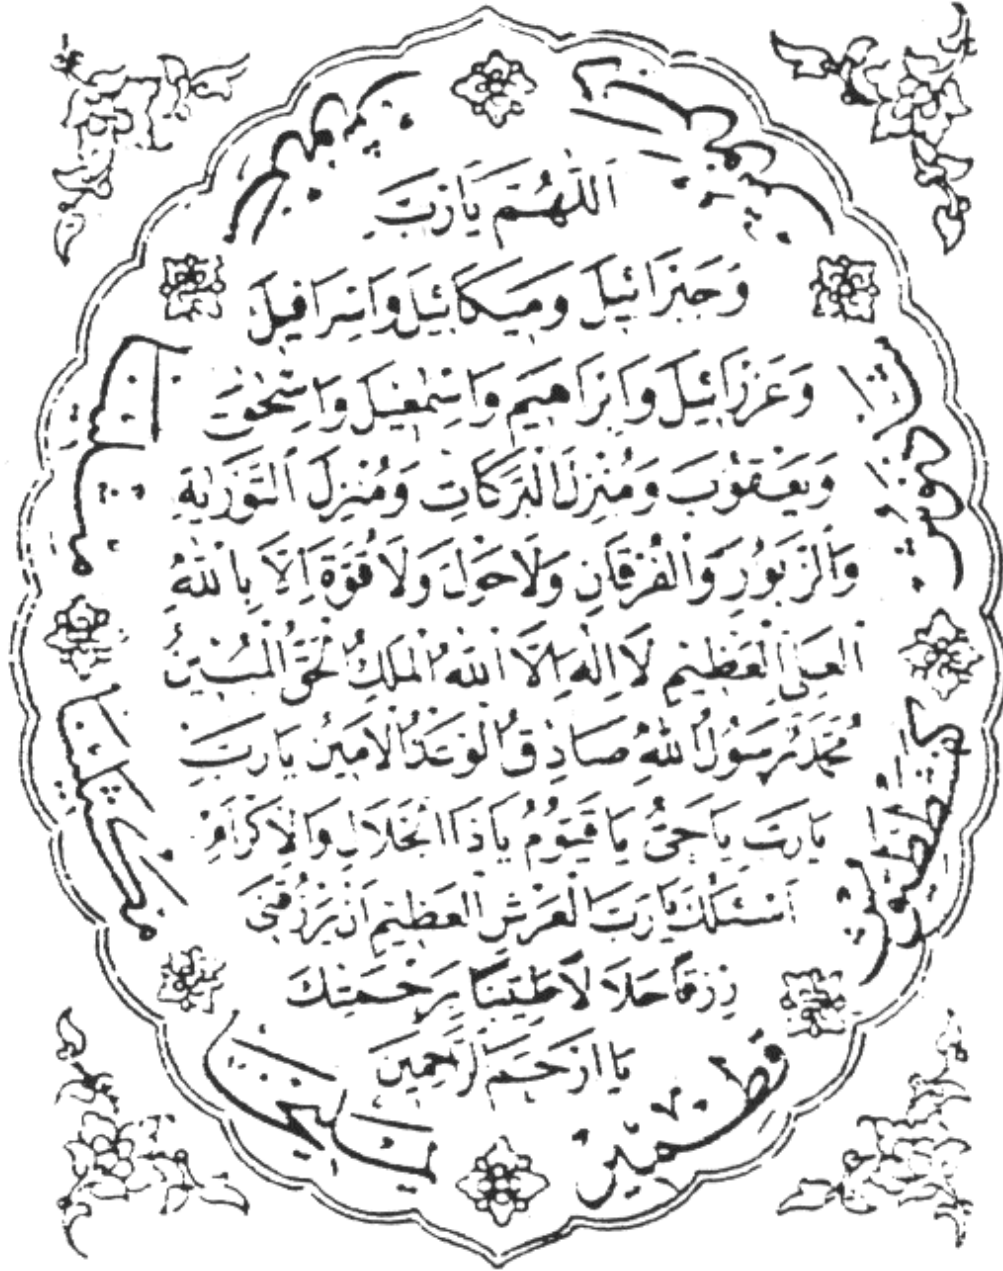 اَللّٰهُمَّ يَا رَبَّ
وَجَبْرَائيلَ وَمِيكَائيلَ وَاِسْرَافِيلَ
وَعَزْرَائيلَ وَاِبْرَاهِيمَ وَاِسْمٰعِيلَ وَاِسْحٰقَ
وَيَعْقُوبَ وَمُنْزِلَ الْبَرَكَاتِ وَمُنْزِلَ التَّوْرٰيةِ
وَالزَّبُورِ وَالْفُرْقَانِ وَلَا حَوْلَ وَلَا قُوَّةَ اِلَّا بِاللّٰهِ
الْعَلِىِّ الْعَظِيمِ لَا اِلٰهَ اِلَّا اللّٰهُ الْمَلِكُ الْحَقُّ الْمُبِينُ
مُحَمَّدٌ رَسُولُ اللّٰهِ صَادِقُ الْوَعْدُ الْاَمِينُ يَا رَبِّ
يَا رَبَّ يَا حَىُّ يَا قَيُّومُ يَا ذَا الْجَلَالِ وَالْاِكْرَامِ
اَسْئَلُكَ يَا رَبَّ الْعَرْشِ الْعَظِيمِ اَنْ يَرْزُقَنِى
رِزْقًا حَلَالًا طَيِّبًا بِرَحْمَتِكَ
يَا اَرْحَمَ الرَّاحِمِينَ